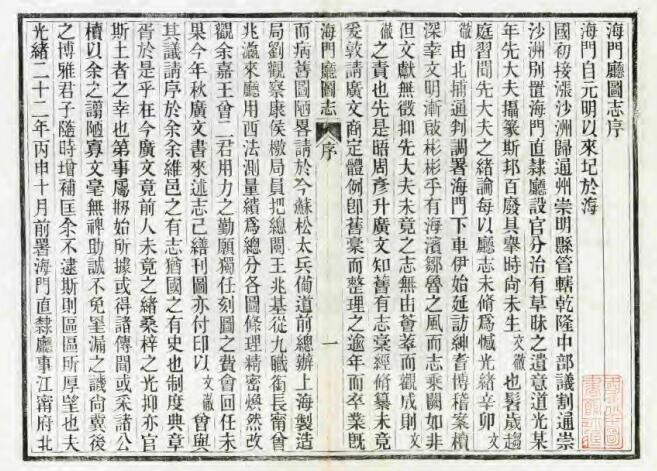 海門廳圖志序
海門自元明以來圮於海
國初接漲沙洲歸通州崇明縣管轄乾隆中部議割通崇
沙洲別置海門直隸廳設官分治有草昧之遺意道光某
年先大夫攝篆斯邦百廢具舉時尚未生文徹也髫歲趨
庭習聞先大夫之緒論每以廳志未脩為憾光緒辛卯文
徹由北捕通判調署海門下車伊始延訪紳耆博稽案牘
深幸文明漸啟彬彬乎有海濱鄒魯之風而志乘闕如非
但文獻無徵抑先大夫未竟之志無由薈萃而觀成則文
徹之責也先是晤周彥升廣文知舊有志稾經脩纂未竟
爰敦請廣文商定體例卽舊稾而整理之逾年而卒業旣
海門廳圖志 序 一
而病舊圖陋畧請於今蘇松太兵備道前總辦上海製造
局劉觀察康侯檄局員把總閻王兆基從九職銜長甯曾
兆瀛來廳用西法測量績為總分各圖條理精密煥然改
觀余嘉王曾二君用力之勤願獨任刻圖之費會回任未
果今年秋廣文書來述志已繕刊圖亦付印以文徹曾與
其議請序於余余維邑之有志猶國之有史也制度典章
胥於是乎在今廣文竟前人未竟之緒桑梓之光抑亦官
斯土者之幸也第事屬剏始所據或得諸傳聞或采諸公
牘以余之譾陋寡文毫無裨助誠不免罣漏之譏尚冀後
之博雅君子隨時增補匡余不逮斯則區區所厚望也夫
光緒二十二年丙申十月前署海門直隸廳事江甯府北